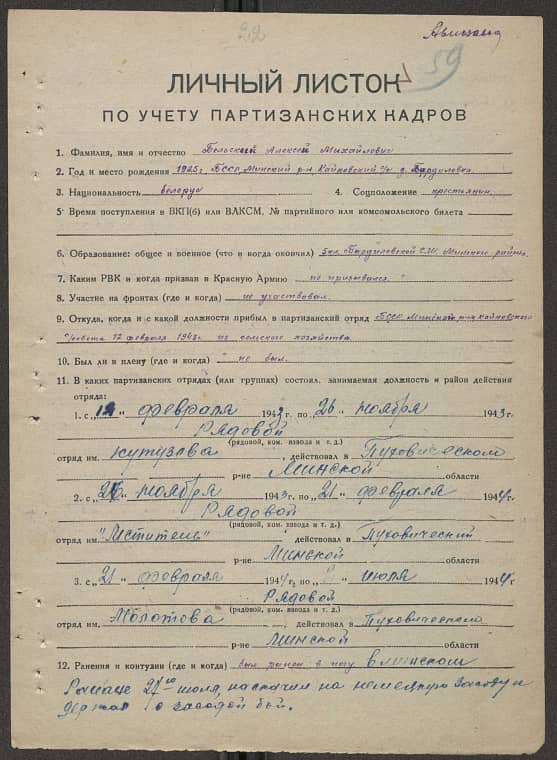 22
59
ЛИЧНЫЙ ЛИСТОК
ПО УЧЕТУ ПАРТИЗАНСКИХ КАДРОВ
1. Фамилия, имя и отчество Бельский Алексей Михайлович
2. Год и место рождения 1925г. БССР Минский р-н Кайковский с/с д. Бардиловка
3. Национальность белорус 4. Соцположение крестьянин
5. Время поступления в ВКП(б) или ВЛКСМ, № партийного или комсомольского билета
6. Образование: общее и военное (что и когда окончил) 5кл. Бардиловской С.Ш. Минского района
7. Каким РВК и когда призван в Красную Армию не призывался.
8. Участие на фронтах (где и когда) не участвовал.
9. Откуда, когда и с какой должности прибыл в партизанский отряд БССР Минский р-н Кайковского
с/совета 12 февраля 1943г. из сельского хозяйства
10. Был ли в плену (где и когда) не был.
11. В каких партизанских отрядах (или группах) состоял, занимаемая должность и район действия
отряда:
1. с „12" февраля 1943 г. по „26" ноября 1943 г.
Рядовой
(рядовой, ком. взвода и т. д.)
отряд им. Кутузова, действовал в Пуховическом
р-не Минской области
2. с „26" ноября 1943 г. по „21" февраля 1944 г.
Рядовой
(рядовой, ком. взвода и т. д.)
отряд им. "Мститель" действовал в Пуховический
р-не Минской области
3. с „21" февраля 1944 г. по июля 1944 г.
Рядовой
(рядовой, ком. взвода и т. д.)
отряд им. Молотова, действовал в Пуховическом
р-не Минской области
12. Ранения и контузии (где и когда) был ранен в ногу в Минском
Районе июля, на немецкую засаду и
с засадой бой.